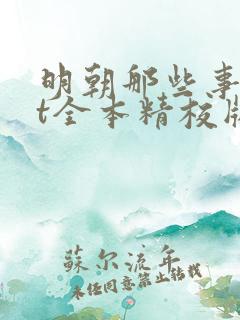 明朝那些事
t全本精校版
苏尔流年
未经同意禁止转载